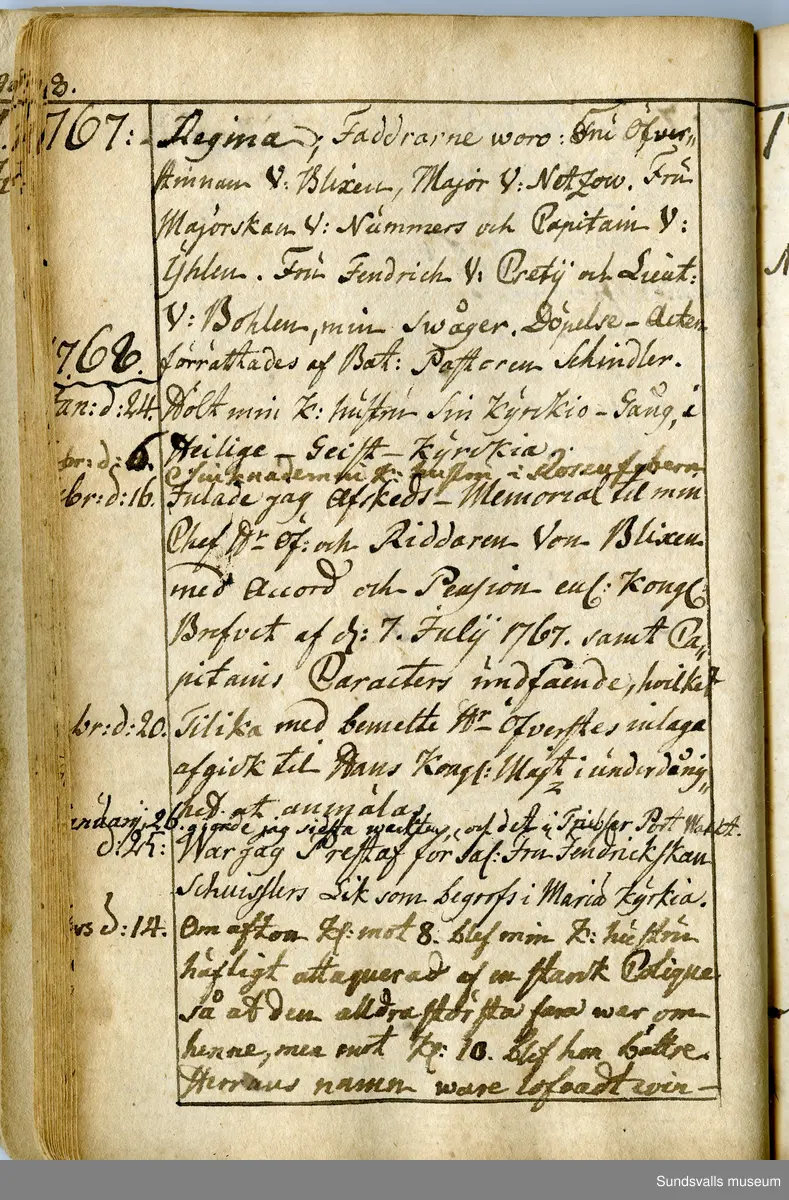 8.
1767: Regina; Faddrarne woro: Fru Öfver„
stinnan V: Blixen, Major V: Netzow. Fru
Majorskan V: Nummers och Capitain V:
Yhlen. Fru Fendrich V: Pretÿ och Lieut:
V: Bohlen, min Swåger. Döpelse-Acten
förrättades af Bat: Pastoren Schindler.
1768.
Jan: d: 24. Hölt min K: hustru Sin Kyrkio-Gång, i
Heilige-Geist-Kyrckia.
br: d: 6. min K: hustru i
br: d: 16. Inlade jag Afskeds-Memorial til min
Chef Hr Öf: och Riddaren Von Blixen
med Accord och Pension enl: Kongl:
Brefvet af d: 7. Julÿ 1767. samt Ca„
pitains Caracters undfående, hvilket
br: d: 20. Tilika med bemelte Hr Öfverstes inlaga
afgick til Hans Kongl: Majt i underdånig„
het at anmälas.
anuarj. 26. giorde jag sidsta wackten, och det i Tribser Port Wackt.
d: 28: War jag Prestaf för Sal: Fru Fendrickskan
Schuisslers Lik som begrofs i Mariä Kyrkia.
rs d: 14. Om afton Kl: mot 8. blef min K: hustru
häftigt attaquerad af en starck Colique
så at den alldrastörsta fara war om
henne, men mot Kl: 10. blef hon bättre.
Herrans namn ware lofvadt
Sundsvalls museum